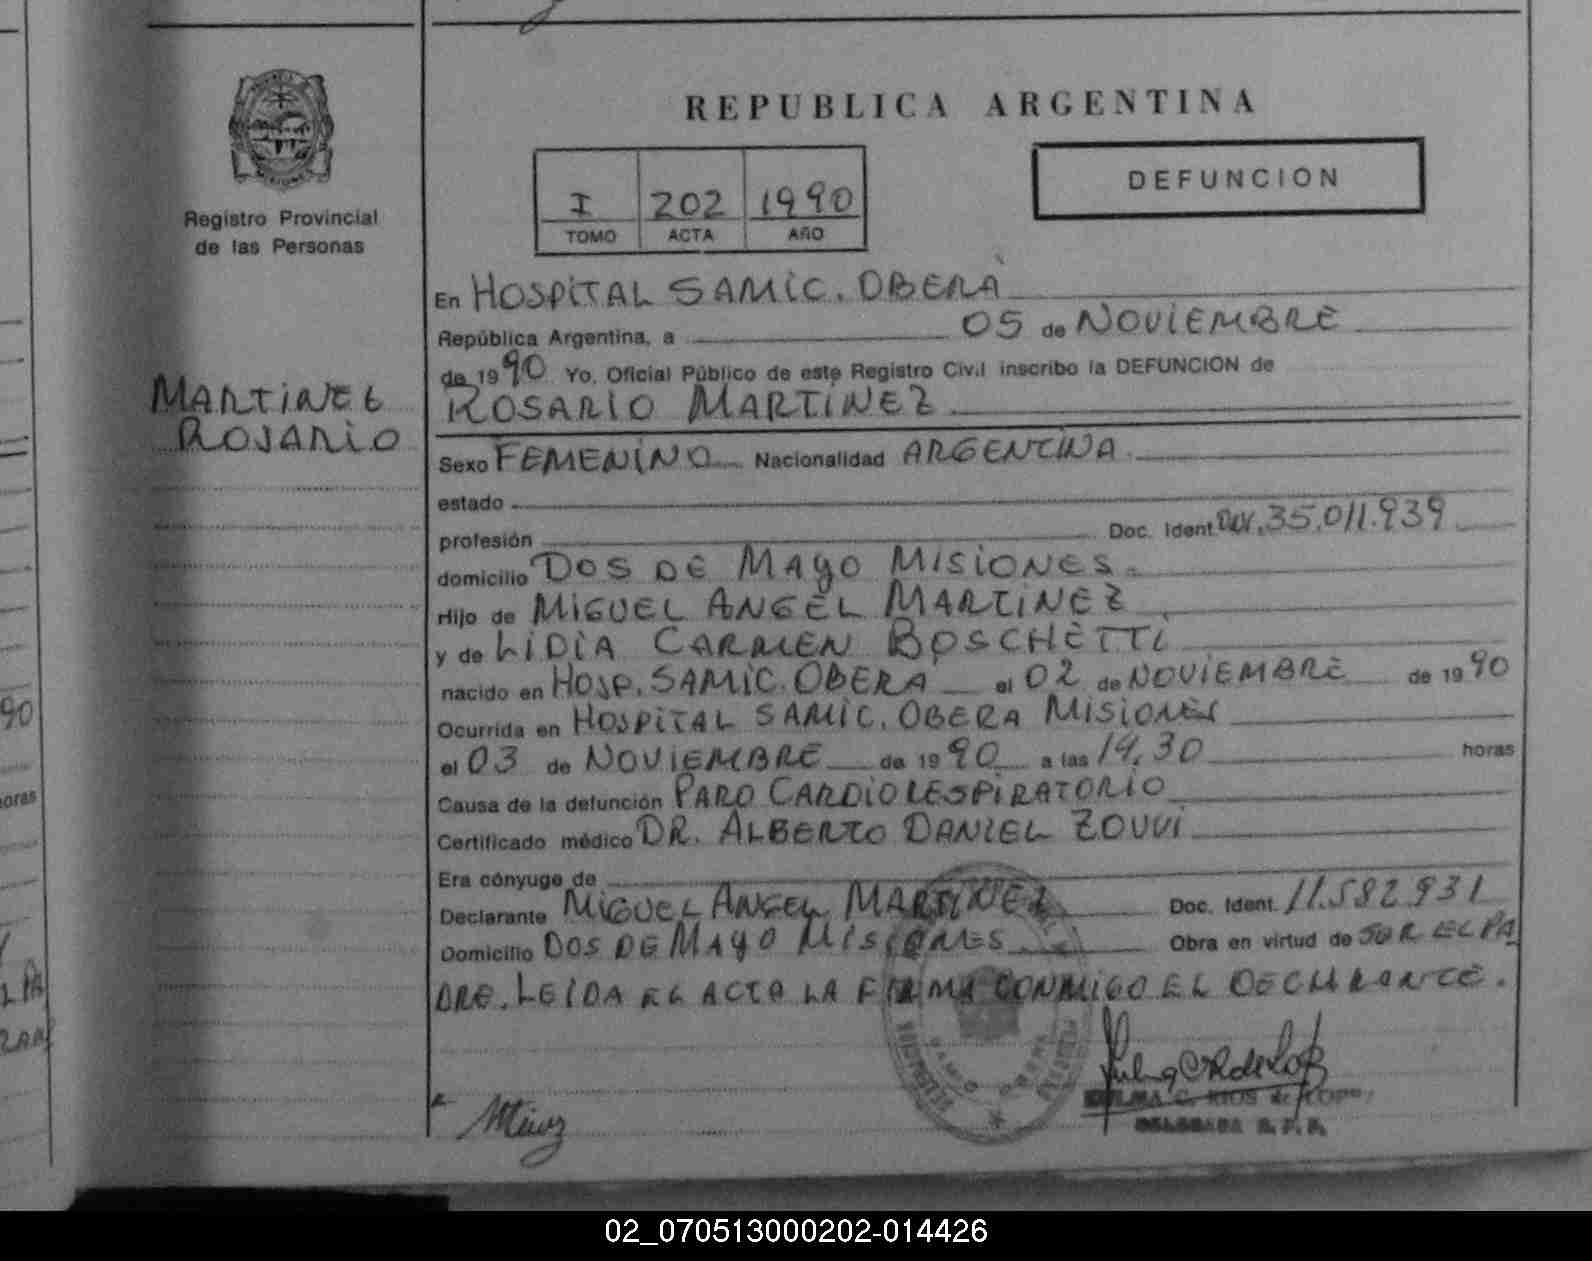 REPUBLICA ARGENTINA
DEFUNCION
I 202 1990
TOMO ACTA AÑO
Registro Provincial
de las Personas
MARTINEZ
ROSARIO
En HOSPITAL SAMIC. OBERÁ
República Argentina, a 05 de NOVIEMBRE
de 1990 Yo, Oficial Público de este Registro Civil inscribo la DEFUNCION de
ROSARIO MARTINEZ
Sexo FEMENINO Nacionalidad ARGENTINA
estado
profesión Doc. Ident. 35.011.939
domicilio DOS DE MAYO MISIONES
Hijo de MIGUEL ANGEL MARTINEZ
y de LIDIA CARMEN BOSCHETTI
nacido en HOSP. SAMIC. OBERA el 02 de NOVIEMBRE de 1990
Ocurrida en HOSPITAL SAMIC. OBERA MISIONES
el 03 de NOVIEMBRE de 1990 a las 14,30 horas
Causa de la defunción PARO CARDIORESPIRATORIO
Certificado médico DR. ALBERTO DANIEL
Era cónyuge de
Declarante MIGUEL ANGEL MARTINEZ Doc. Ident. 11.582.931
Domicilio DOS DE MAYO MISIONES Obra en virtud de SER EL PA
DRE. LEIDA EL ACTA LA FIRMA CONMIGO EL DECLARANTE.
ZULMA C. RIOS de LOPEZ
DELEGADA R. P. P.
90
horas
02_070513000202-014426